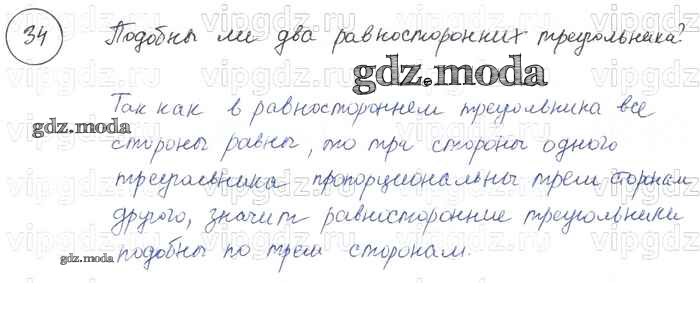 34 Подобны ли два равносторонних треугольника?
gdz.moda
Так как в равностороннем треугольника все
gdz.moda
стороны равны, то три стороны одного
треугольника пропорциональны трем сторонам
другого, значит равносторонние треугольники
подобны по трем сторонам.
gdz.moda